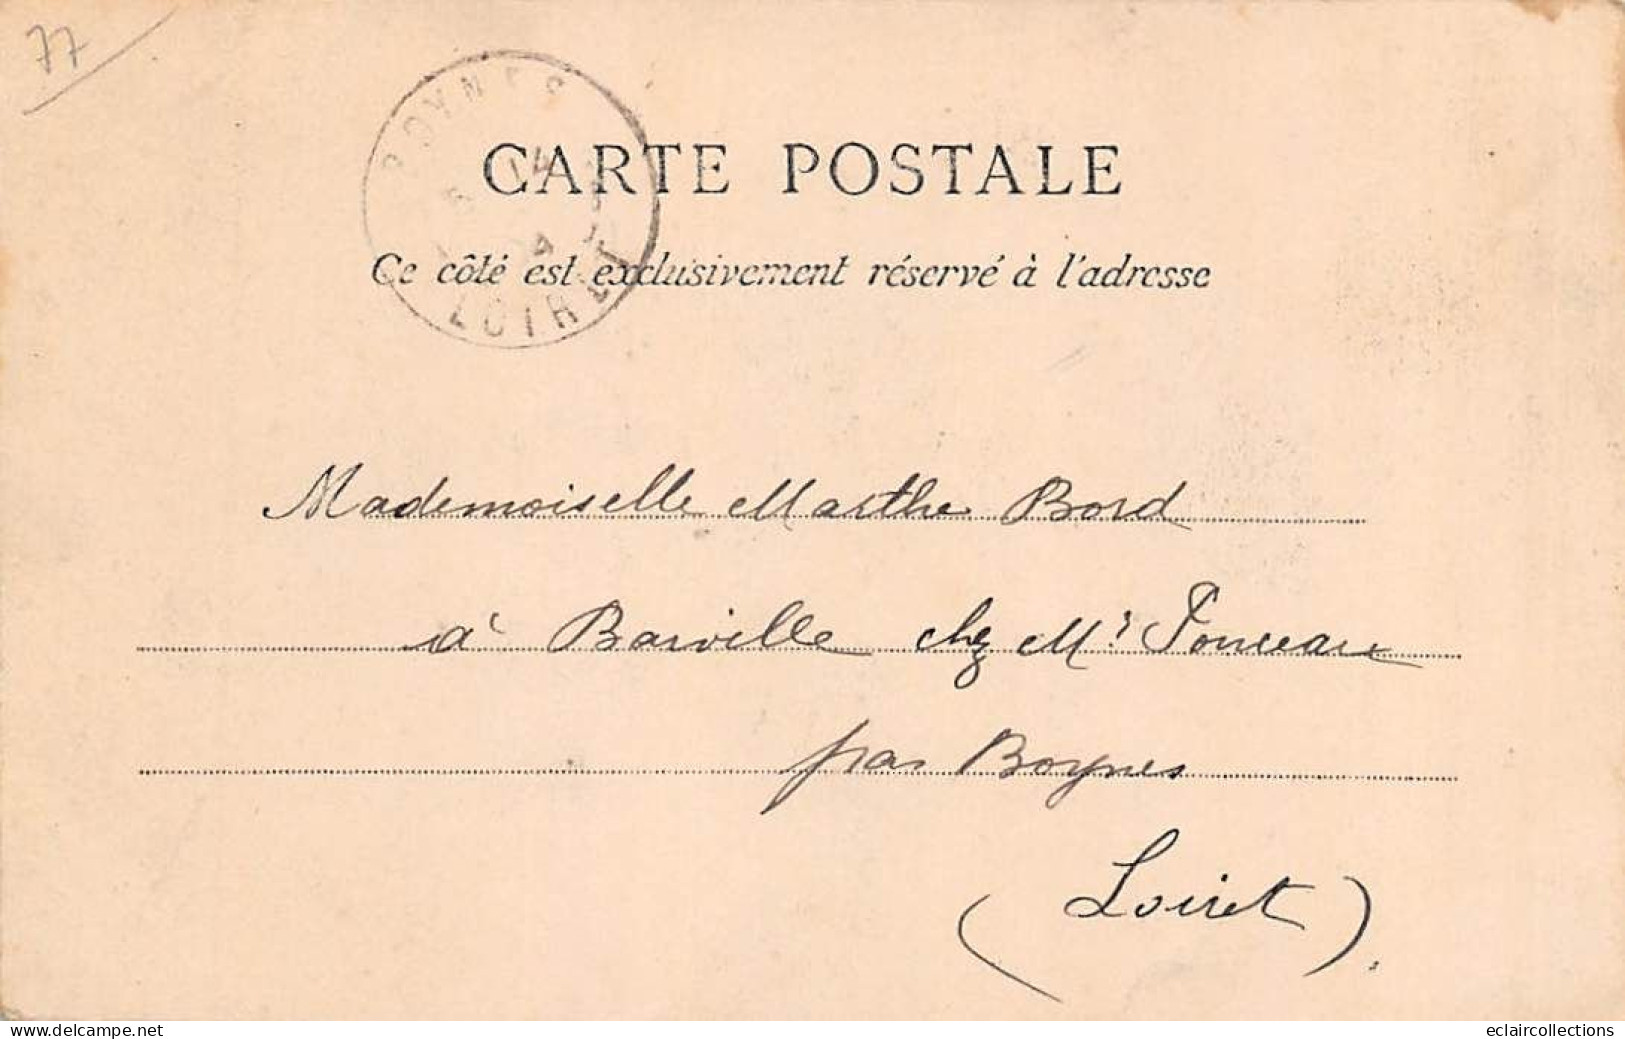 77
BOYNES
14
04
LOIRET
CARTE POSTALE
Ce côté est exclusivement réservé à l'adresse
Mademoiselle Marthe Bord
à Barville chez Mr Ponceau
par Boynes
(Loiret).
www.delcampe.net
eclaircollections